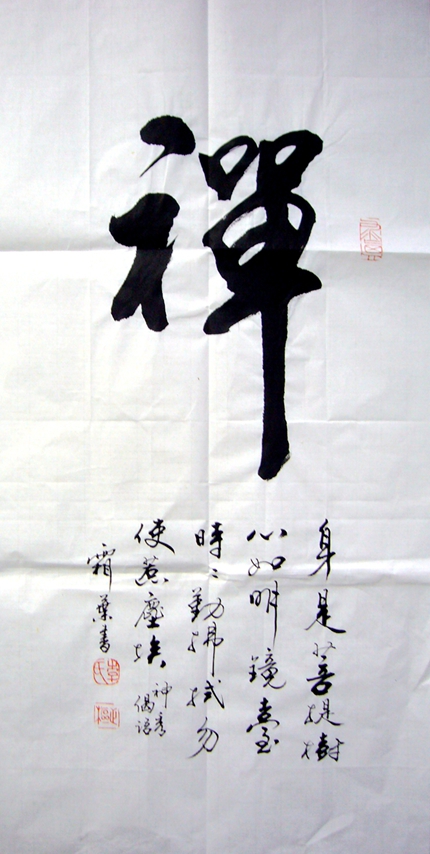 禪
身是菩提樹
心如明鏡臺
時〻勤拂拭勿
使惹塵埃
神秀
偈語
霜葉書